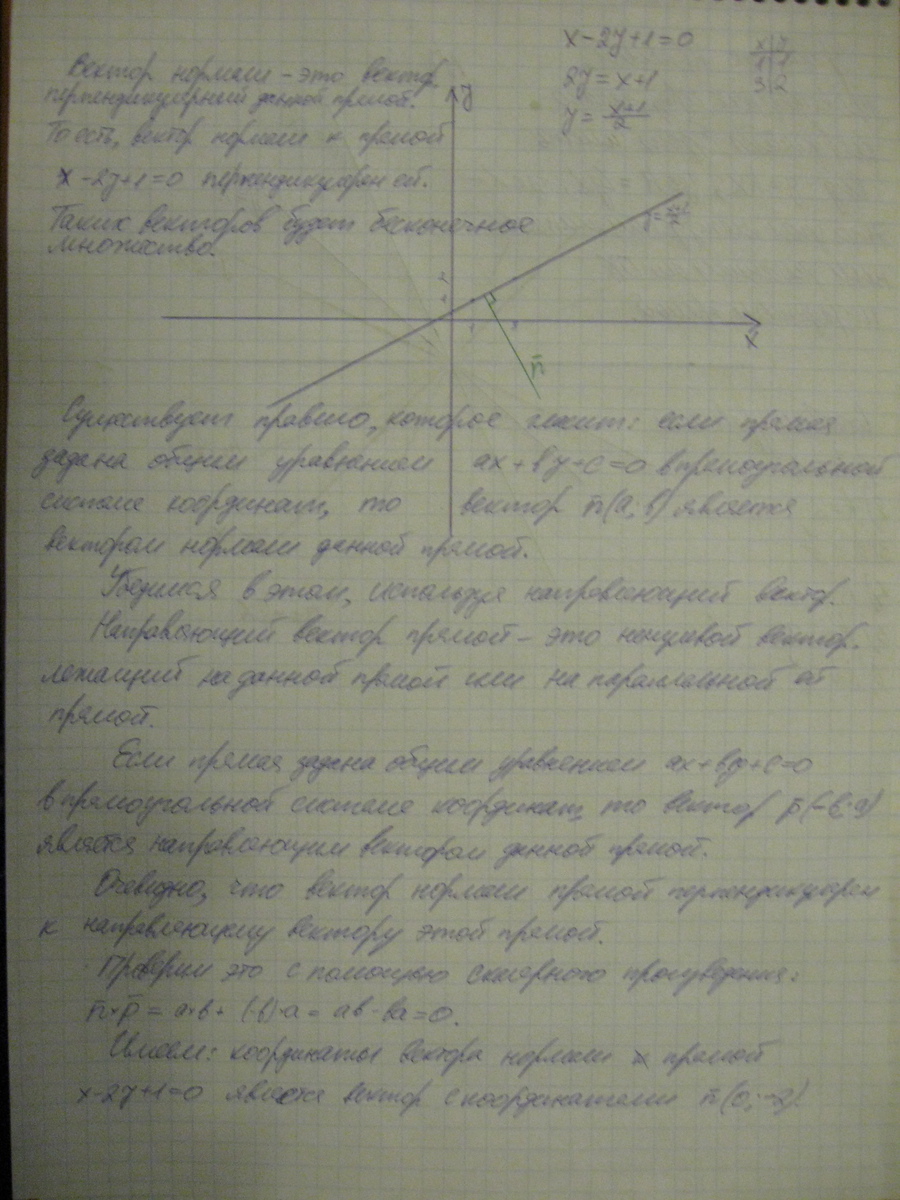 x-2y+1=0
2y=x+1
y=x+1/2
x|y
1|1
3|2
Вектор нормали - это вектор,
перпендикулярный данной прямой.
То есть, вектор нормали к прямой
x-2y+1=0 перпендикулярен ей.
Таких векторов будет бесконечное
множество.
y
y=x+1/2
x
n̄
Существует правило, которое гласит: если прямая
задана общим уравнением ax+by+c=0 в прямоугольной
системе координат, то вектор n̄(a;b) является
вектором нормали данной прямой.
Убедимся в этом, используя направляющий вектор.
Направляющий вектор прямой - это ненулевой вектор,
лежащий на данной прямой или на параллельной ей
прямой.
Если прямая задана общим уравнением ax+by+c=0
в прямоугольной системе координат, то вектор p̄(-b;a)
является направляющим вектором данной прямой.
Очевидно, что вектор нормали прямой перпендикулярен
к направляющему вектору этой прямой.
Проверим это с помощью скалярного произведения:
n̄×p̄ = a×b+ (-b)·a = ab-ba=0.
Имеем: координаты вектора нормали прямой
x-2y+1=0 является вектор с координатами n̄(0;-2)